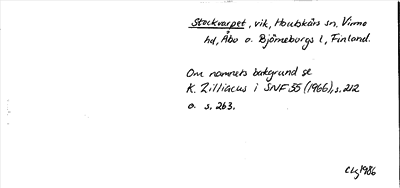 Stockvarpet, vik, Houtskärs sn, Virmo
hd, Åbo o. Björneborgs l, Finland.
Om namnets bakgrund se
K. Zilliacus i SNF 55 (1966), s. 212
o. s. 263.
CLg 1986